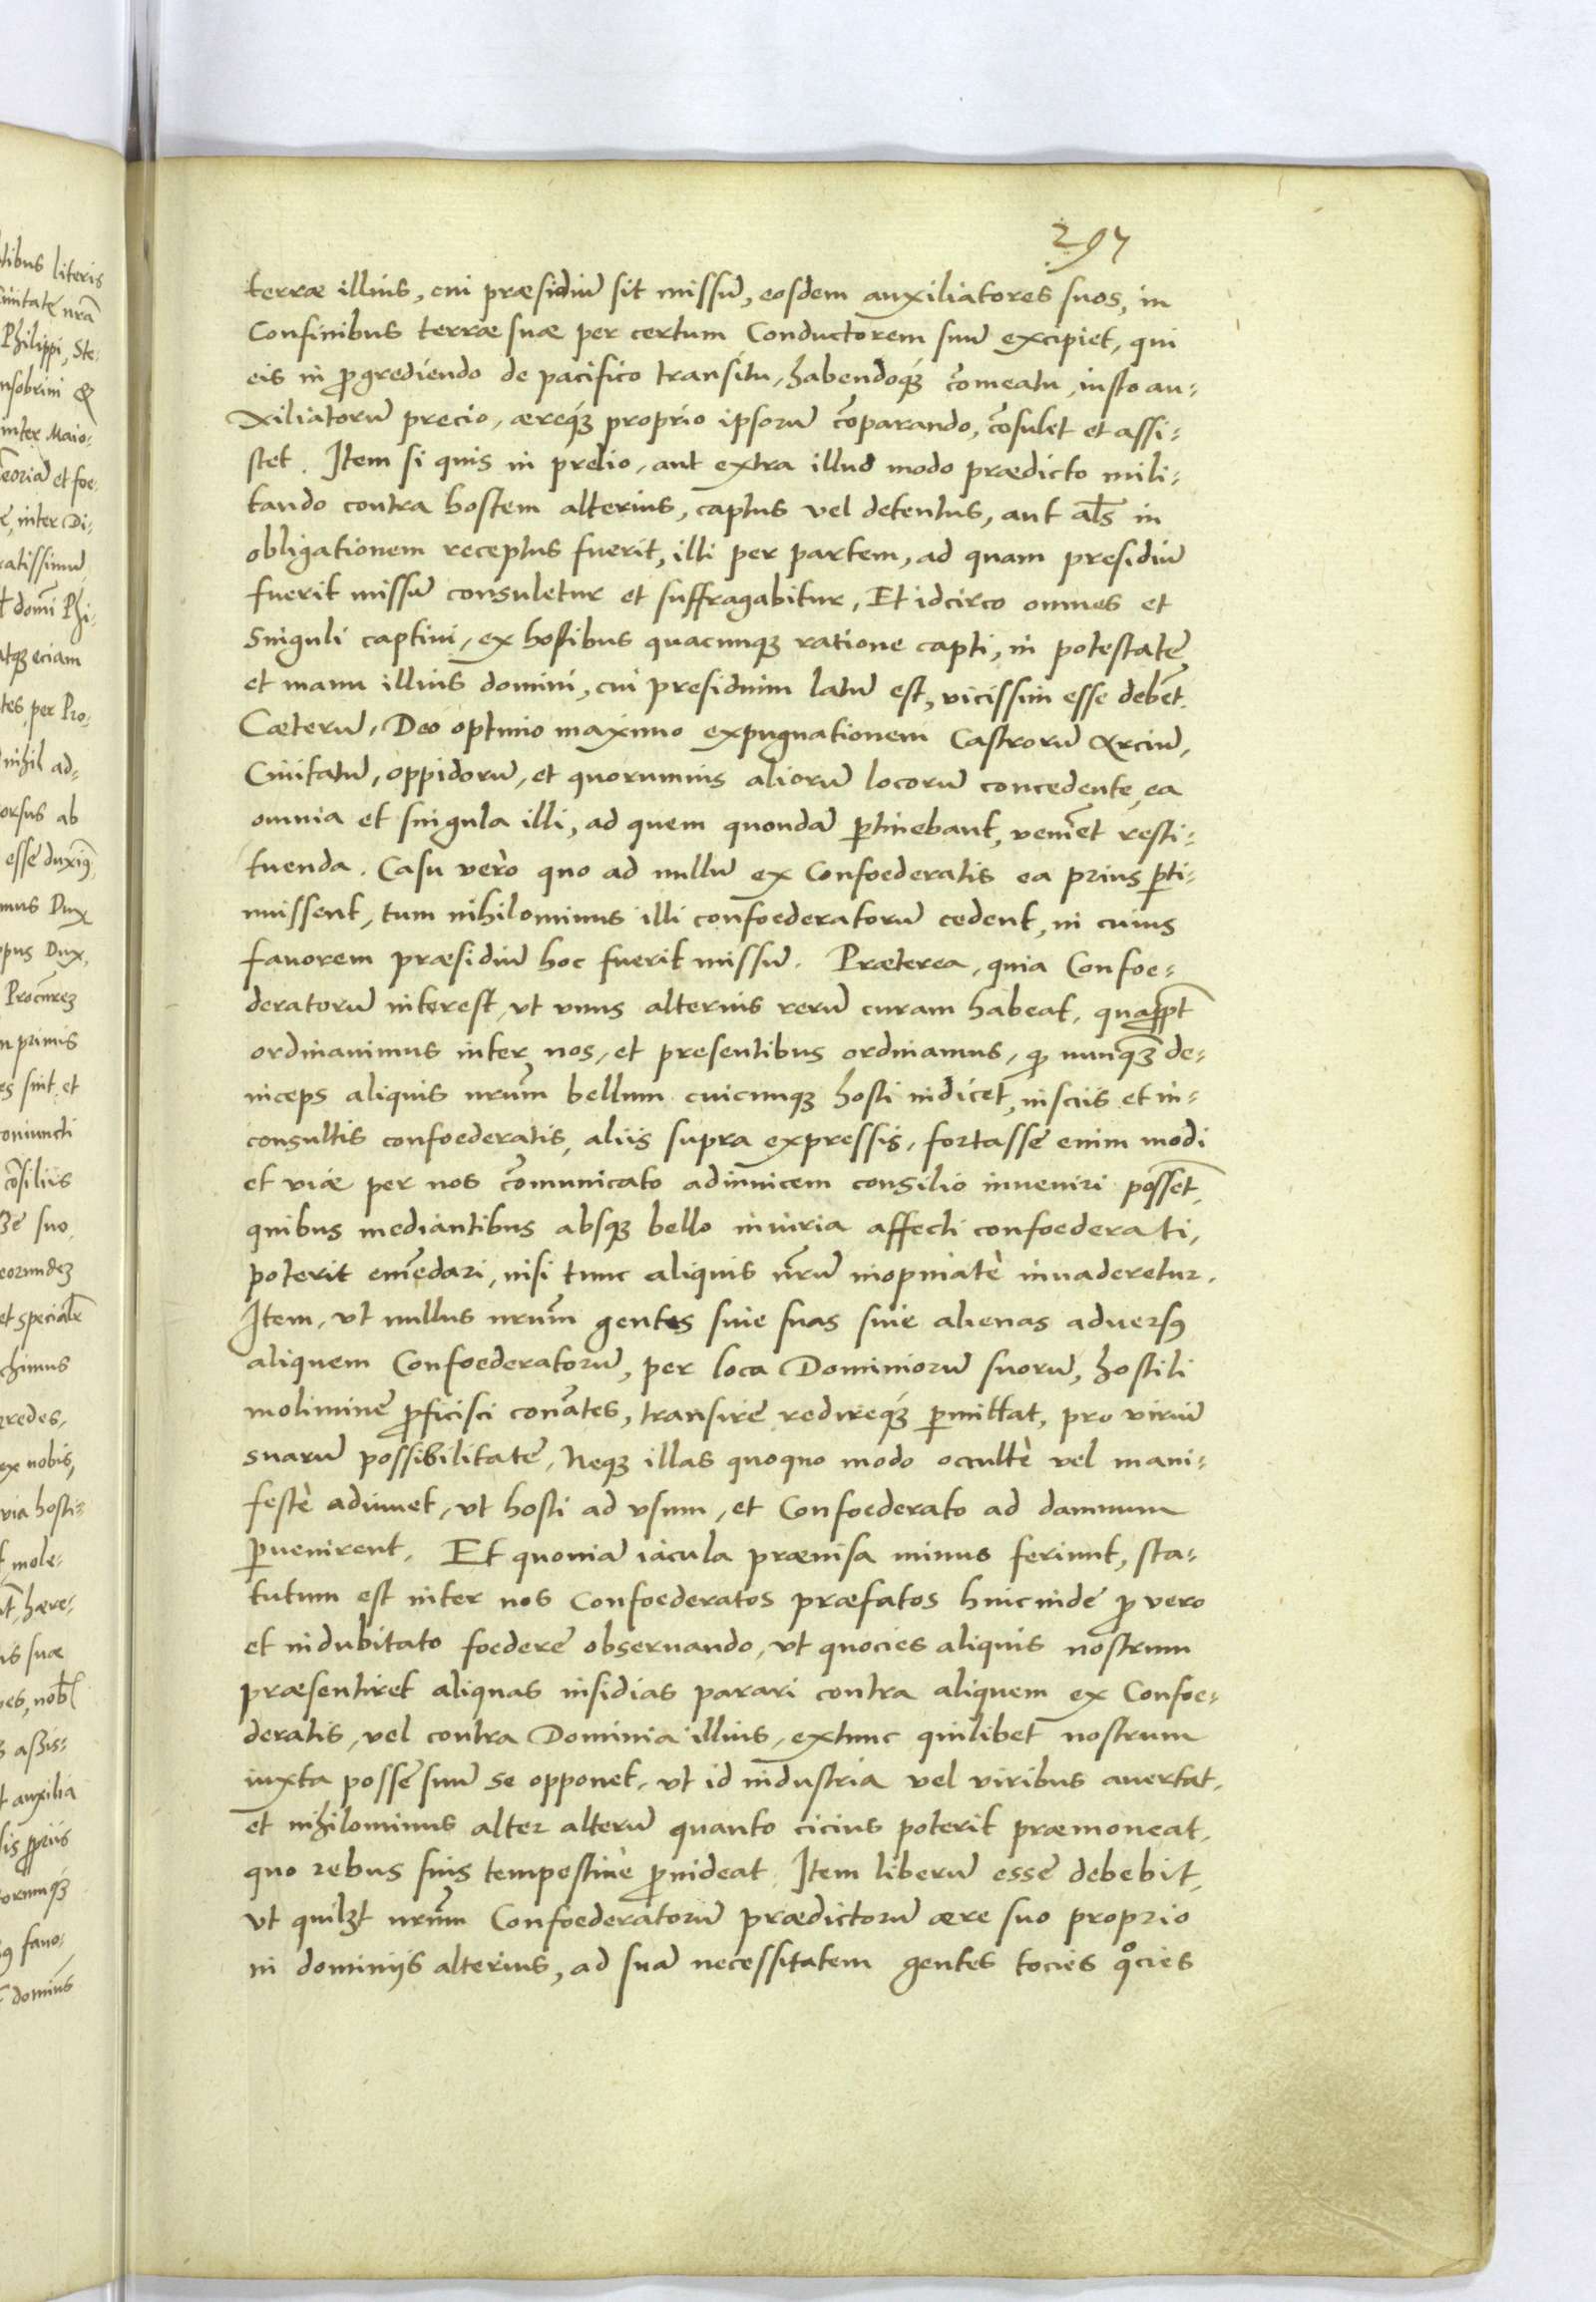 297
terræ illius, cui præsidiū sit missū, eosdem auxiliatores suos, in
Confinibus terræ suæ per certum Conductorem suū excipiet, qui
eis in ꝓgrediendo de pacifico transitu, habendoqꝫ cōmeatu, iusto au-
xiliatorū precio, æreqꝫ proprio ipsorū cōparando, cōsulet et assi-
stet. Item si quis in prelio, aut extra illud modo prædicto mili-
tando contra hostem alterius, captus vel detentus, aut al̄s in
obligationem receptus fuerit, illi per partem, ad quam presidiū
fuerit missū consuletur et suffragabitur, Et idcirco omnes et
Singuli captiui, ex hostibus quacunqꝫ ratione capti, in potestatē
et manu illius domini, cui presidium latū est, vicissim esse debēt.
Cæterū, Deo optimo maximo expugnationem Castrorū Arciū,
Ciuitatū, oppidorū, et quorumuis aliorū locorū concedente, ea
omnia et singula illi, ad quem quondā ꝑtinebant, veniēt resti-
tuenda. Casu vero quo ad nullū ex Confoederatis ea prius ꝑti-
nuissent, tum nihilominus illi confoederatorū cedent, in cuius
fauorem præsidiū hoc fuerit missū. Præterea, quia Confoe-
deratorū interest, vt vnus alterius rerū curam habeat, quaꝓpt̄
ordinauimus inter nos, et presentibus ordinamus, ꝙ nunqꝫ de-
inceps aliquis nrūm bellum cuicunqꝫ hosti indicet, insciis et in-
consultis confoederatis, aliis supra expressis, fortasse enim modi
et viæ per nos cōmunicato adinuicem consilio inueniri possēt,
quibus mediantibus absqꝫ bello iniuria affecti confoederati,
poterit emēdari, nisi tunc aliquis nr̄ū inopinatè inuaderetur.
Item, vt nullus nrūm gentes siue suas siue alienas aduersꝰ
aliquem Confoederatorū, per loca Dominiorū suorū, hostili
molimine ꝓficisci conātes, transire redireqꝫ ꝑmittat, pro viriū
suarū possibilitate, Neqꝫ illas quoquo modo occultè vel mani-
festè adiuuet, vt hosti ad vsum, et Confoederato ad damnum
ꝑuenirent. Et quoniā iacula præuisa minus feriunt, sta-
tutum est inter nos Confoederatos præfatos hincinde ꝓ vero
et indubitato foedere obseruando, vt quocies aliquis nostrum
præsentiret aliquas insidias parari contra aliquem ex Confoe-
deratis, vel contra Dominia illius, extunc quilibet nostrum
iuxta posse suū se opponet, vt id industria vel viribus auertat,
et nihilominus alter alterū quanto cicius poterit præmoneat,
quo rebus suis tempestiue ꝓuideat. Item liberū esse debebit,
vt quilꝫt nrūm Confoederatorū prædictorū ære suo proprio
in dominijs alterius, ad suā necessitatem gentes tocies qͦcies